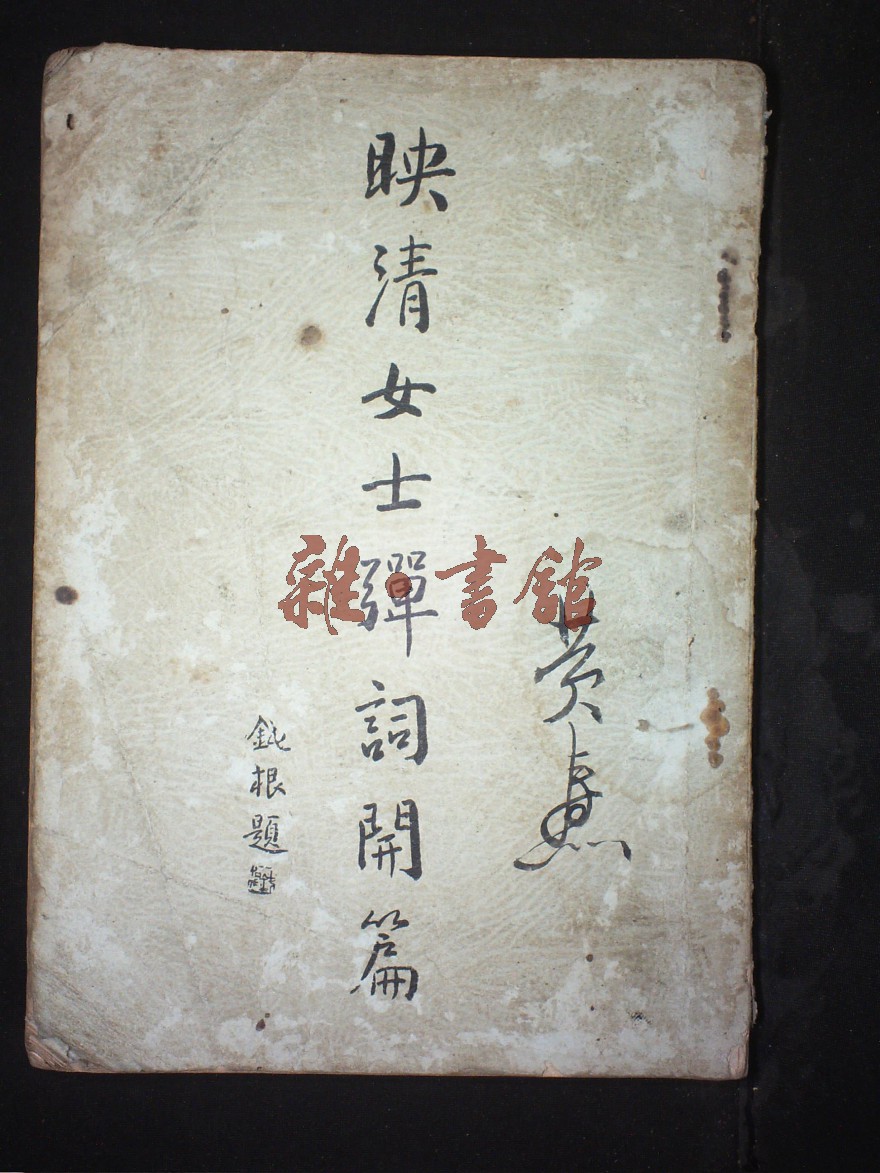 映清女士彈詞開篇
鈍根題
雜書館